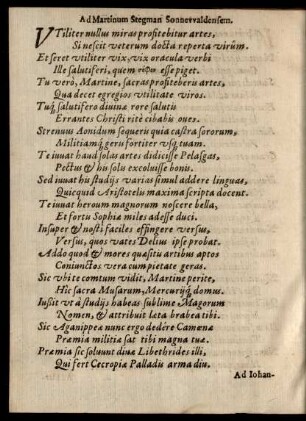 Ad Martinum Stegman Sonnevvaldensem.
VTiliter nullus miras profitebitur artes,
Si nescit veterum docta reperta virûm.
Et feret vtiliter vix, vix oracula verbi
Ille salutiferi, quem esse piget.
Tu verò, Martine, sacras profiteberis artes,
Qua decet egregios vtilitate viros.
Tuq́; salutifero diuinæ rore salutis
Errantes Christi ritè cibabis oues.
Strenuus Aonidum sequeris quia castra sororum,
Militiamq́; geru fortiter vsq; tuam.
Te iuuat haud solas artes didicisse Pelasgas,
Pectus & his solis excoluisse bonis.
Sed iuuat his studijs varias simul addere linguas,
Quicquid Aristotelis maxima scripta docent.
Te iuuat heroum magnorum noscere bella,
Et fortis Sophiæ miles adesse duci.
Insuper & nosti faciles effingere versus,
Versus, quos vates Delius ipse probat.
Addo quod & mores quæsitis artibus aptos
Coniunctos vera cum pietate geras.
Sic vbi te comtum vidit, Martine perite,
Hic sacra Musarum, Mercurijq́; domus.
Iussit vt à studijs habeas sublime Magorum
Nomen, & attribuit læta brabea tibi.
Sic Aganippeæ nunc ergo dedêre Camenæ
Præmia militiæ sat tibi magna tuæ.
Præmia sic soluunt diuæ Libethrides illi,
Qui fert Cecropiæ Palladis arma diu.
Ad Iohan-